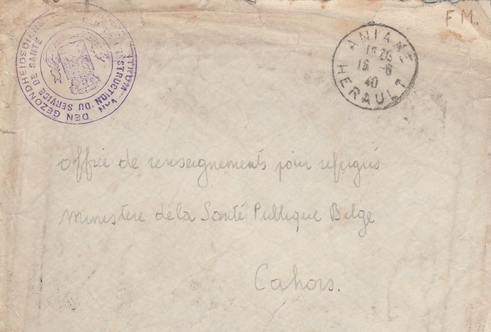 F.M.
TRUM VAN DEN GEZONDHEIDSDI
INSTRUCTION DU SERVICE DE SANTÉ
ANIANE
16 - 6
40
HERAULT
Office de renseignements pour refugiés
Ministère de la Santé Publique Belge
Cahors.